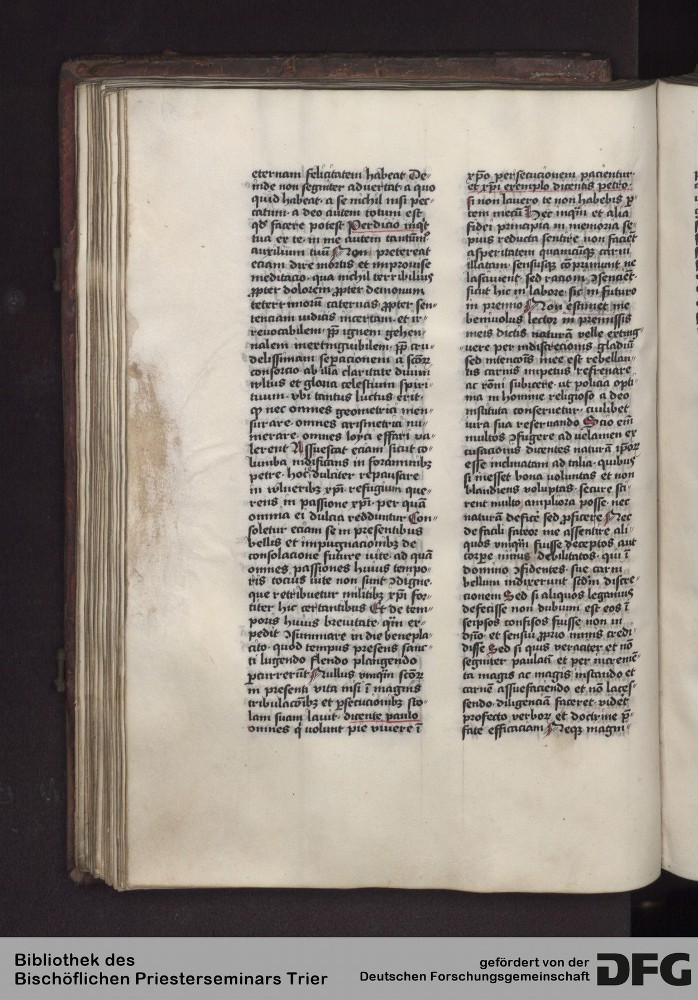 eternam felicitatem habeat De-
inde non segniter aduertat a quo
quid habeat a se nichil nisi pec-
catum a deo autem totum est
qd facere potest Perdicio inqt
tua ex te in me autem tantum
auxilium tuu Non pretereat
eciam dire mortis et improuise
meditacio qua nichil terribilius
ppter dolorem ppter demonum
teterrimoru cateruas ppter sen-
tenciam iudicis incertam et ir-
reuocabilem pp ignem gehen-
nalem inextinguibilem pp cru-
delissimam sepacionem a scor
consorcio ab illa claritate diuini
vultus et gloria celestium spiri-
tuum vbi tantus luctus erit
q nec omnes geometrici men-
surare omnes arismetrici nu-
merare omnes loyci effari va-
lerent Assuescat eciam sicut co-
lumba nidificans in foraminibz
petre hoc dulciter repausare
in vulneribz xpi refugium que-
rens in passione xpi per quam
omnia ei dulcia redduntur Con-
soletur eciam se in presentibus
bellis et impugnacionibz de
consolacione future vite ad qua
omnes passiones huius tempo-
ris tocius vite non sunt 9digne
que retribuetur militibz xpi for-
titer hic certantibus Et de tem-
poris huius breuitate qm ex-
pedit 9summare in die benepla-
cito quod tempus presens sanc-
ti lugendo flendo plangendo
pcurrerunt Nullus vnqm scor
in presenti vita nisi i magnis
tribulacoibz et psecucionibz sto-
lam suam lauit dicente paulo
omnes q volunt pie viuere i
xpo persecucionem pacientur
et xpi exemplo dicentis petro
si non lauero te non habebis p-
tem mecu Hec inqm et alia
fidei principia in memoria se-
pius reducta sentire non faciet
asperitatem quamcuqz carni
illatam sensusqz coprimunt ne
lasciuient sed racioni 9senciet
sicut hic in labore sic in futuro
in premio Non estimet me
beniuolus lector in premissis
meis dictis natura velle exting-
uere per indiscrecionis gladiu
sed intencois mee est rebellan-
tis carnis impetus refrenare
ac roni subicere ut policia opti-
ma in homine religioso a deo
instituta conseruetur cuilibet
iura sua reseruando Scio eni
multos 9fugere ad velamen ex-
cusacionis dicentes natura ipor
esse inclinatam ad talia quibus
si inesset bona voluntas et non
blandiens voluptas secure sci-
rent multo ampliora posse nec
natura defice sed pficere Nec
de facili fateor me assentire ali-
quos vnqm fuisse deceptos aut
corpe nimis debilitatos qui i
domino 9fidentes sue carni
bellum indixerunt scdm discre-
cionem Sed si aliquos legamus
defecisse non dubium est eos i
seipsos confisos fuisse non in
dno et sensui pprio nimis credi-
disse Sed si quis veraciter et no
segniter paulati et per increme-
ta magis ac magis instando et
carne assuefaciendo et no laces-
sendo diligencia faceret videt
profecto verbor et doctrine p-
fate efficaciam Neqz magni-
Bibliothek des
Bischöflichen Priesterseminars Trier
gefördert von der
Deutschen Forschungsgemeinschaft DFG